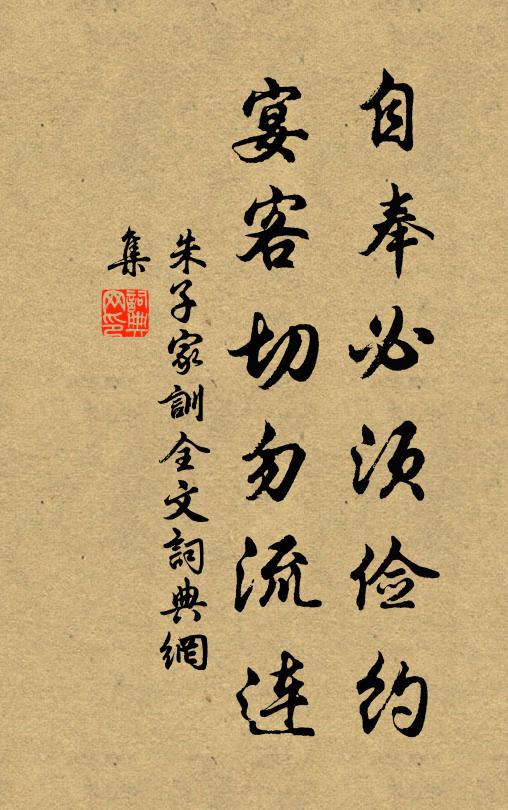 自奉必须俭约
宴客切勿流连
朱子家訓全文詞典網
集
詞典
网印